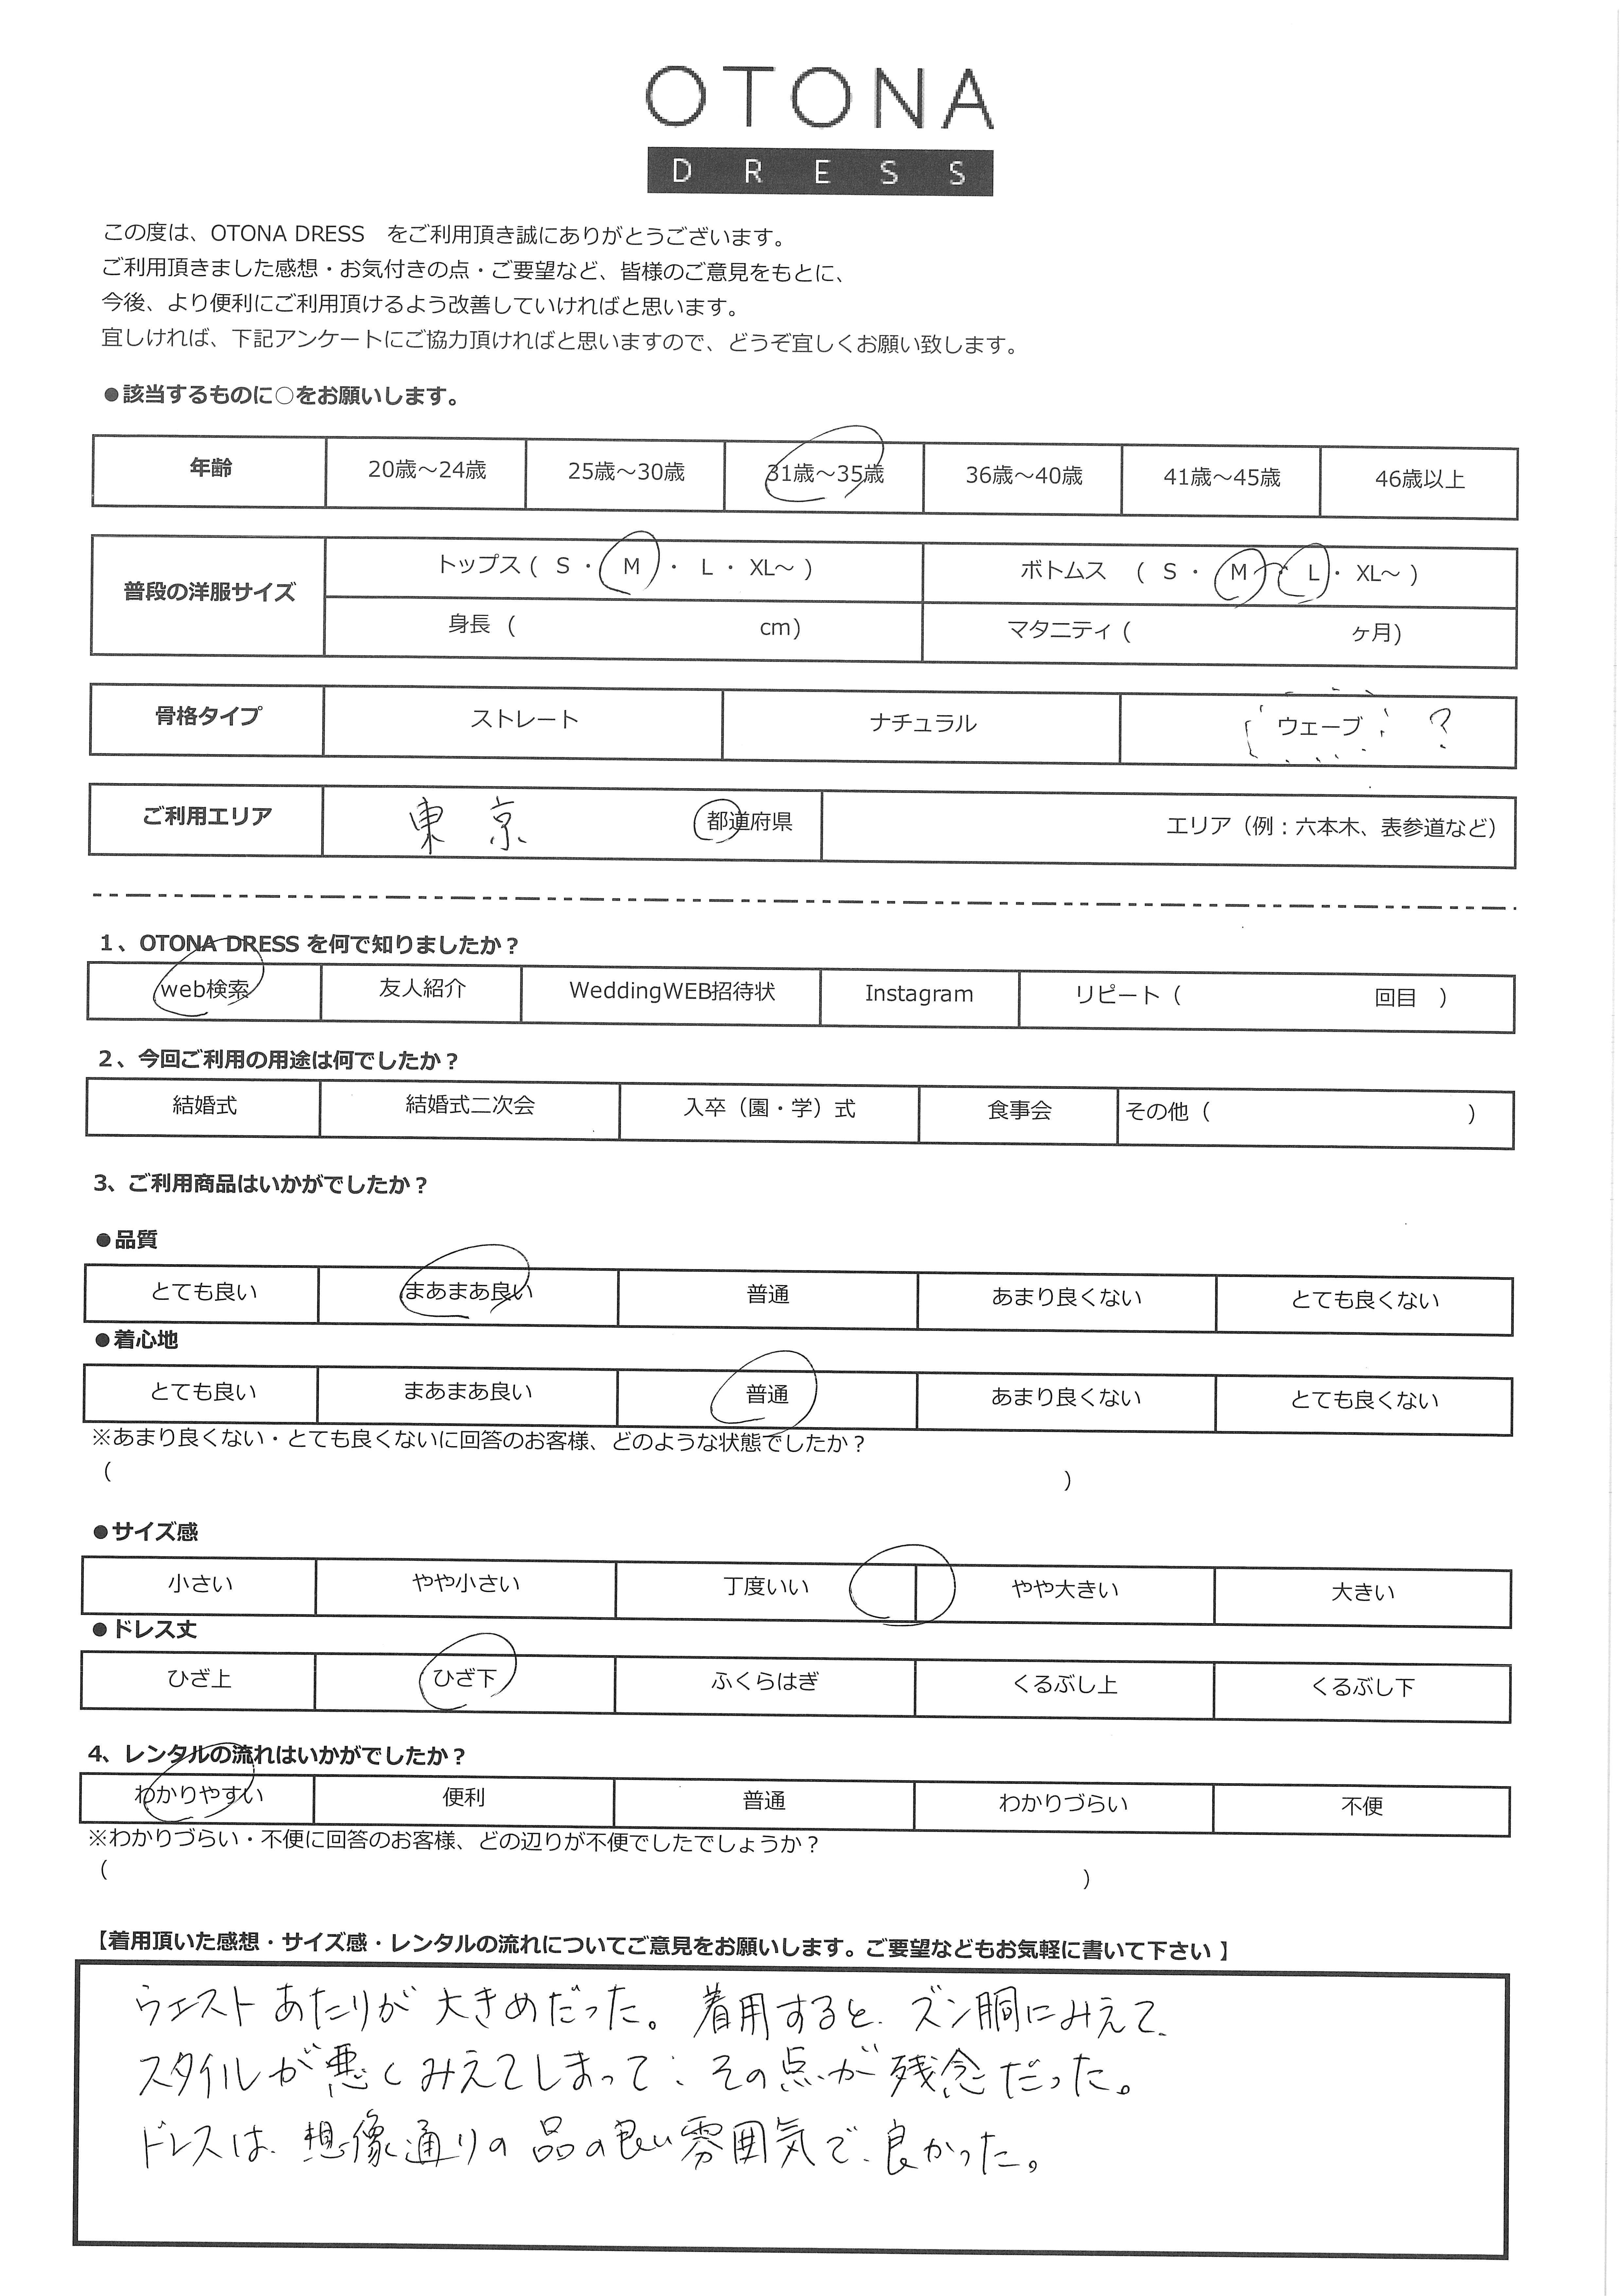 OTONA
DRESS
この度は、OTONA DRESS　をご利用頂き誠にありがとうございます。
ご利用頂きました感想・お気付きの点・ご要望など、皆様のご意見をもとに、
今後、より便利にご利用頂けるよう改善していければと思います。
宜しければ、下記アンケートにご協力頂ければと思いますので、どうぞ宜しくお願い致します。
●該当するものに○をお願いします。
年齢 20歳～24歳 25歳～30歳 31歳～35歳 36歳～40歳 41歳～45歳 46歳以上
普段の洋服サイズ トップス ( S ・ M ・ L ・ XL～ ) ボトムス ( S ・ M ・ L ・ XL～ )
身長 ( cm) マタニティ ( ヶ月)
骨格タイプ ストレート ナチュラル ウェーブ ?
ご利用エリア 東京 都道府県 エリア（例：六本木、表参道など）
1、OTONA DRESS を何で知りましたか？
web検索 友人紹介 WeddingWEB招待状 Instagram リピート（ 回目 ）
2、今回ご利用の用途は何でしたか？
結婚式 結婚式二次会 入卒（園・学）式 食事会 その他（ ）
3、ご利用商品はいかがでしたか？
●品質
とても良い まあまあ良い 普通 あまり良くない とても良くない
●着心地
とても良い まあまあ良い 普通 あまり良くない とても良くない
※あまり良くない・とても良くないに回答のお客様、どのような状態でしたか？
（ ）
●サイズ感
小さい やや小さい 丁度いい やや大きい 大きい
●ドレス丈
ひざ上 ひざ下 ふくらはぎ くるぶし上 くるぶし下
4、レンタルの流れはいかがでしたか？
わかりやすい 便利 普通 わかりづらい 不便
※わかりづらい・不便に回答のお客様、どの辺りが不便でしたでしょうか？
（ ）
【着用頂いた感想・サイズ感・レンタルの流れについてご意見をお願いします。ご要望などもお気軽に書いて下さい 】
ウエストあたりが大きめだった。着用すると、ズン胴にみえて、
スタイルが悪くみえてしまって、その点が残念だった。
ドレスは、想像通りの品の良い雰囲気で、良かった。